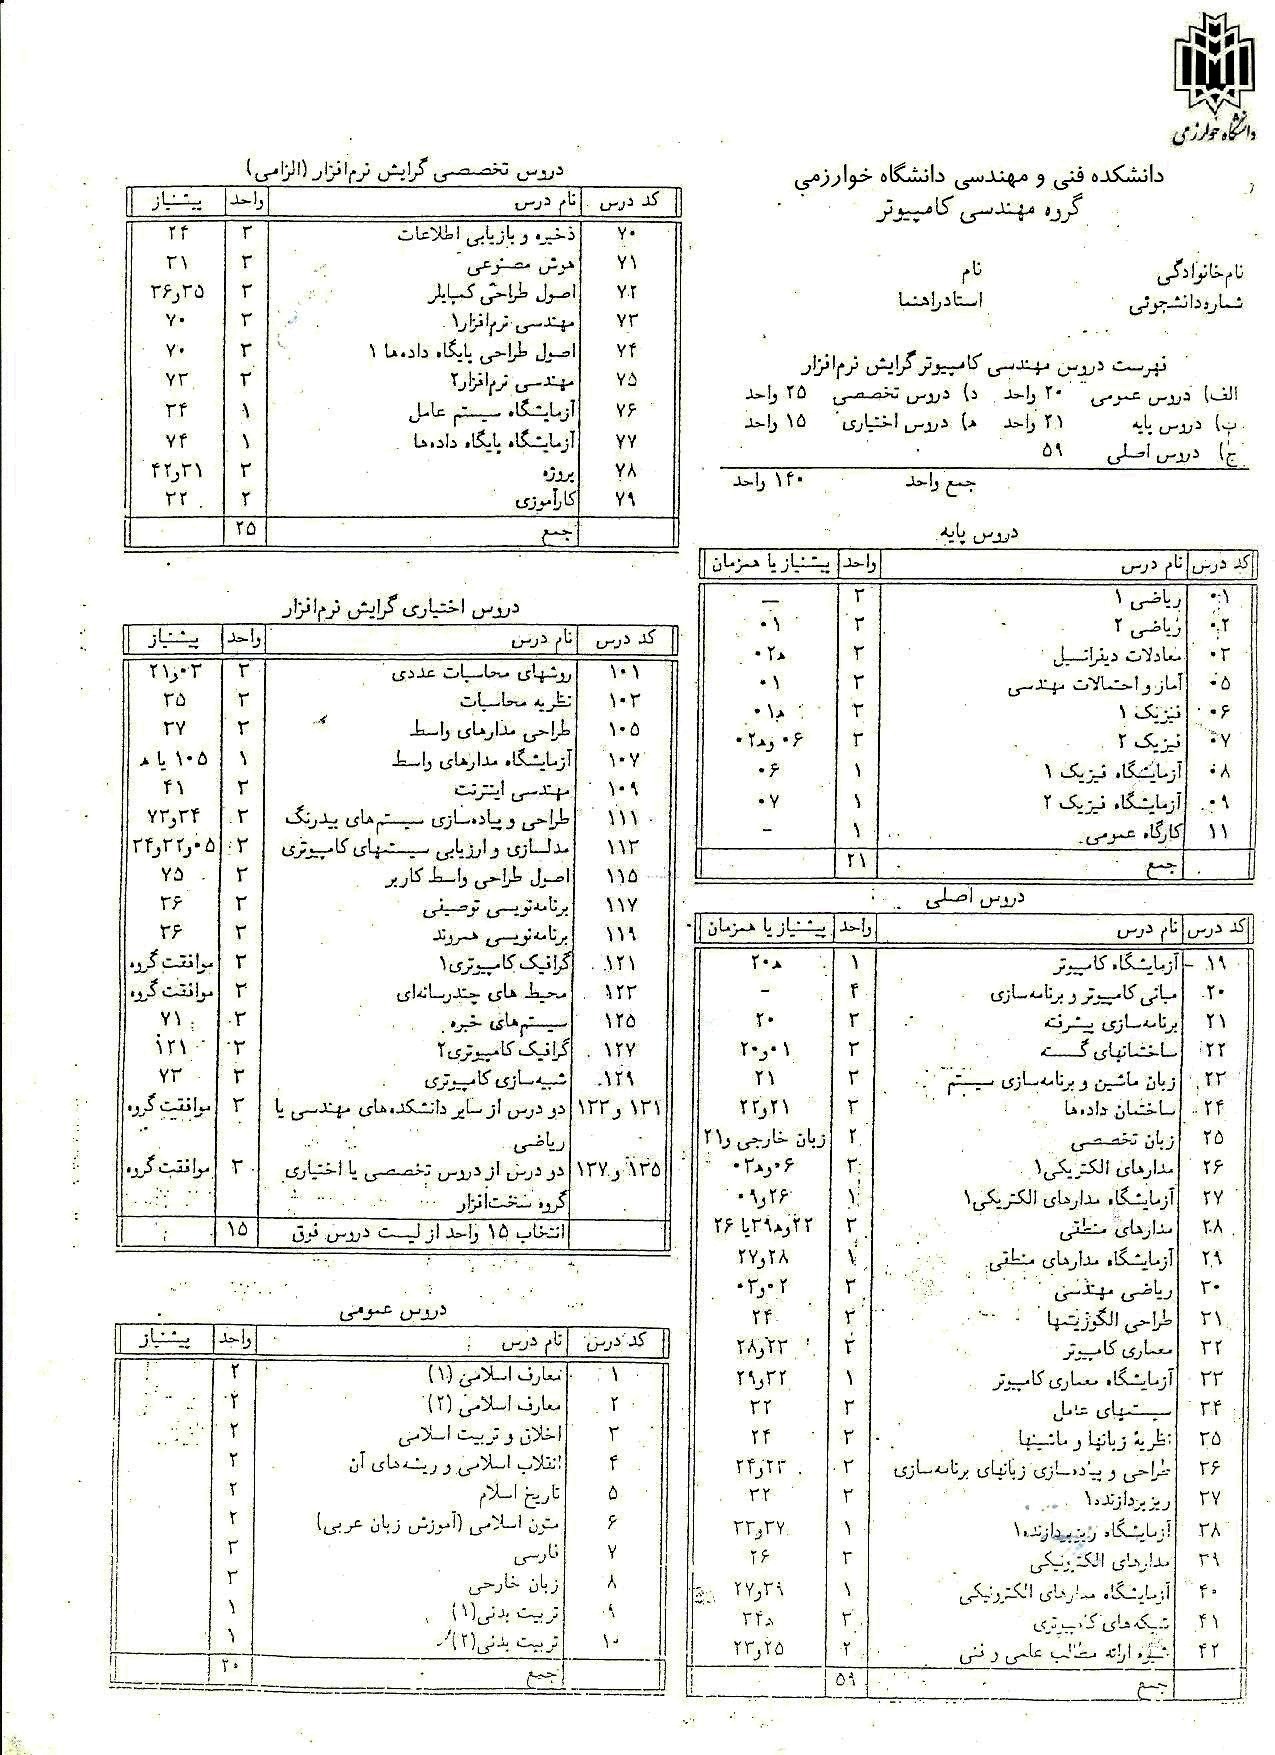 دانشگاه خوارزمی
دانشکده فنی و مهندسی دانشگاه خوارزمی
گروه مهندسی کامپیوتر
نام‌خانوادگی نام
شماره‌دانشجوئی استادراهنما
فهرست دروس مهندسی کامپیوتر گرایش نرم‌افزار
الف) دروس عمومی ۲۰ واحد د) دروس تخصصی ۲۵ واحد
ب) دروس پایه ۲۱ واحد ه) دروس اختیاری ۱۵ واحد
ج) دروس اصلی ۵۹
جمع واحد ۱۴۰ واحد
دروس پایه
کد درس نام درس واحد پیشنیاز یا همزمان
۰۱ ریاضی ۱ ۳ —
۰۲ ریاضی ۲ ۳ ۰۱
۰۳ معادلات دیفرانسیل ۳ ه۰۲
۰۵ آمار و احتمالات مهندسی ۳ ۰۱
۰۶ فیزیک ۱ ۳ ه۰۱
۰۷ فیزیک ۲ ۳ ۰۶ و ه۰۲
۰۸ آزمایشگاه فیزیک ۱ ۱ ۰۶
۰۹ آزمایشگاه فیزیک ۲ ۱ ۰۷
۱۱ کارگاه عمومی ۱ -
جمع ۲۱
دروس اصلی
کد درس نام درس واحد پیشنیاز یا همزمان
۱۹ آزمایشگاه کامپیوتر ۱ ه۲۰
۲۰ مبانی کامپیوتر و برنامه‌سازی ۴ -
۲۱ برنامه‌سازی پیشرفته ۳ ۲۰
۲۲ ساختمانهای گسسته ۳ ۰۱و۲۰
۲۳ زبان ماشین و برنامه‌سازی سیستم ۳ ۲۱
۲۴ ساختمان داده‌ها ۳ ۲۱و۲۲
۲۵ زبان تخصصی ۲ زبان خارجی و۲۱
۲۶ مدارهای الکتریکی۱ ۳ ۰۶وه۰۳
۲۷ آزمایشگاه مدارهای الکتریکی۱ ۱ ۲۶و۰۹
۲۸ مدارهای منطقی ۳ ۲۲وه۳۹یا ۲۶
۲۹ آزمایشگاه مدارهای منطقی ۱ ۲۸و۲۷
۳۰ ریاضی مهندسی ۳ ۰۲و۰۳
۳۱ طراحی الگوریتمها ۳ ۲۴
۳۲ معماری کامپیوتر ۳ ۲۳و۲۸
۳۳ آزمایشگاه معماری کامپیوتر ۱ ۳۲و۲۹
۳۴ سیستمهای عامل ۳ ۳۲
۳۵ نظریهٔ زبانها و ماشینها ۳ ۲۴
۳۶ طراحی و پیاده‌سازی زبانهای برنامه‌سازی ۳ ۲۳و۲۴
۳۷ ریزپردازنده۱ ۳ ۳۲
۳۸ آزمایشگاه ریزپردازنده۱ ۱ ۳۷و۳۳
۳۹ مدارهای الکترونیکی ۳ ۲۶
۴۰ آزمایشگاه مدارهای الکترونیکی ۱ ۳۹و۲۷
۴۱ شبکه‌های کامپیوتری ۳ ه۳۴
۴۲ شیوه ارائه مطالب علمی و فنی ۲ ۲۵و۲۳
جمع ۵۹
دروس تخصصی گرایش نرم‌افزار (الزامی)
کد درس نام درس واحد پیشنیاز
۷۰ ذخیره و بازیابی اطلاعات ۳ ۲۴
۷۱ هوش مصنوعی ۳ ۳۱
۷۲ اصول طراحی کمپایلر ۳ ۳۵و۳۶
۷۳ مهندسی نرم‌افزار۱ ۳ ۷۰
۷۴ اصول طراحی پایگاه داده‌ها ۱ ۳ ۷۰
۷۵ مهندسی نرم‌افزار۲ ۳ ۷۳
۷۶ آزمایشگاه سیستم عامل ۱ ۳۴
۷۷ آزمایشگاه پایگاه داده‌ها ۱ ۷۴
۷۸ پروژه ۳ ۳۱و۴۲
۷۹ کارآموزی ۲ ۳۲
جمع ۲۵
دروس اختیاری گرایش نرم‌افزار
کد درس نام درس واحد پیشنیاز
۱۰۱ روشهای محاسبات عددی ۳ ۰۳و۲۱
۱۰۳ نظریه محاسبات ۳ ۳۵
۱۰۵ طراحی مدارهای واسط ۳ ۳۷
۱۰۷ آزمایشگاه مدارهای واسط ۱ ۱۰۵ یا ه
۱۰۹ مهندسی اینترنت ۳ ۴۱
۱۱۱ طراحی و پیاده‌سازی سیستم‌های بیدرنگ ۳ ۳۴و۷۳
۱۱۳ مدلسازی و ارزیابی سیستمهای کامپیوتری ۳ ۰۵و۳۲و۳۴
۱۱۵ اصول طراحی واسط کاربر ۳ ۷۵
۱۱۷ برنامه‌نویسی توصیفی ۳ ۳۶
۱۱۹ برنامه‌نویسی همروند ۳ ۳۶
۱۲۱ گرافیک کامپیوتری۱ ۳ موافقت گروه
۱۲۳ محیط های چندرسانه‌ای ۳ موافقت گروه
۱۲۵ سیستم‌های خبره ۳ ۷۱
۱۲۷ گرافیک کامپیوتری۲ ۳ ۱۲۱
۱۲۹ شبیه‌سازی کامپیوتری ۳ ۷۳
۱۳۱ و ۱۳۳ دو درس از سایر دانشکده‌های مهندسی یا ۳ موافقت گروه
ریاضی
۱۳۵ و۱۳۷ دو درس از دروس تخصصی یا اختیاری ۳ موافقت گروه
گروه سخت‌افزار
انتخاب ۱۵ واحد از لیست دروس فوق ۱۵
دروس عمومی
کد درس نام درس واحد پیشنیاز
۱ معارف اسلامی (۱) ۲
۲ معارف اسلامی (۲) ۲
۳ اخلاق و تربیت اسلامی ۲
۴ انقلاب اسلامی و ریشه‌های آن ۲
۵ تاریخ اسلام ۲
۶ متون اسلامی (آموزش زبان عربی) ۲
۷ فارسی ۳
۸ زبان خارجی ۳
۹ تربیت بدنی(۱) ۱
۱۰ تربیت بدنی(۲) ۱
جمع ۲۰